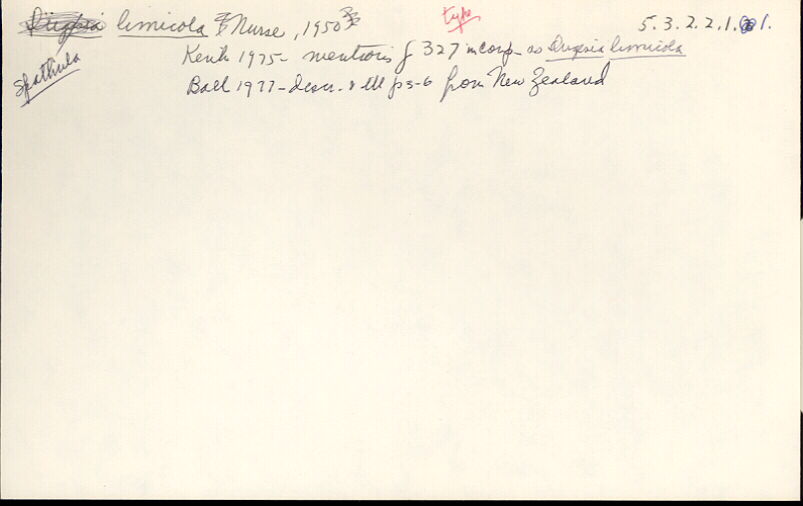 limicola Nurse, 1950 type 5.3.2.2.1. 1.
Spathula
Kenk 1975 - mentions p 327 incorp - as Dugesia limicola
Ball 1977 - descr. & ill p 5-6 from New Zealand